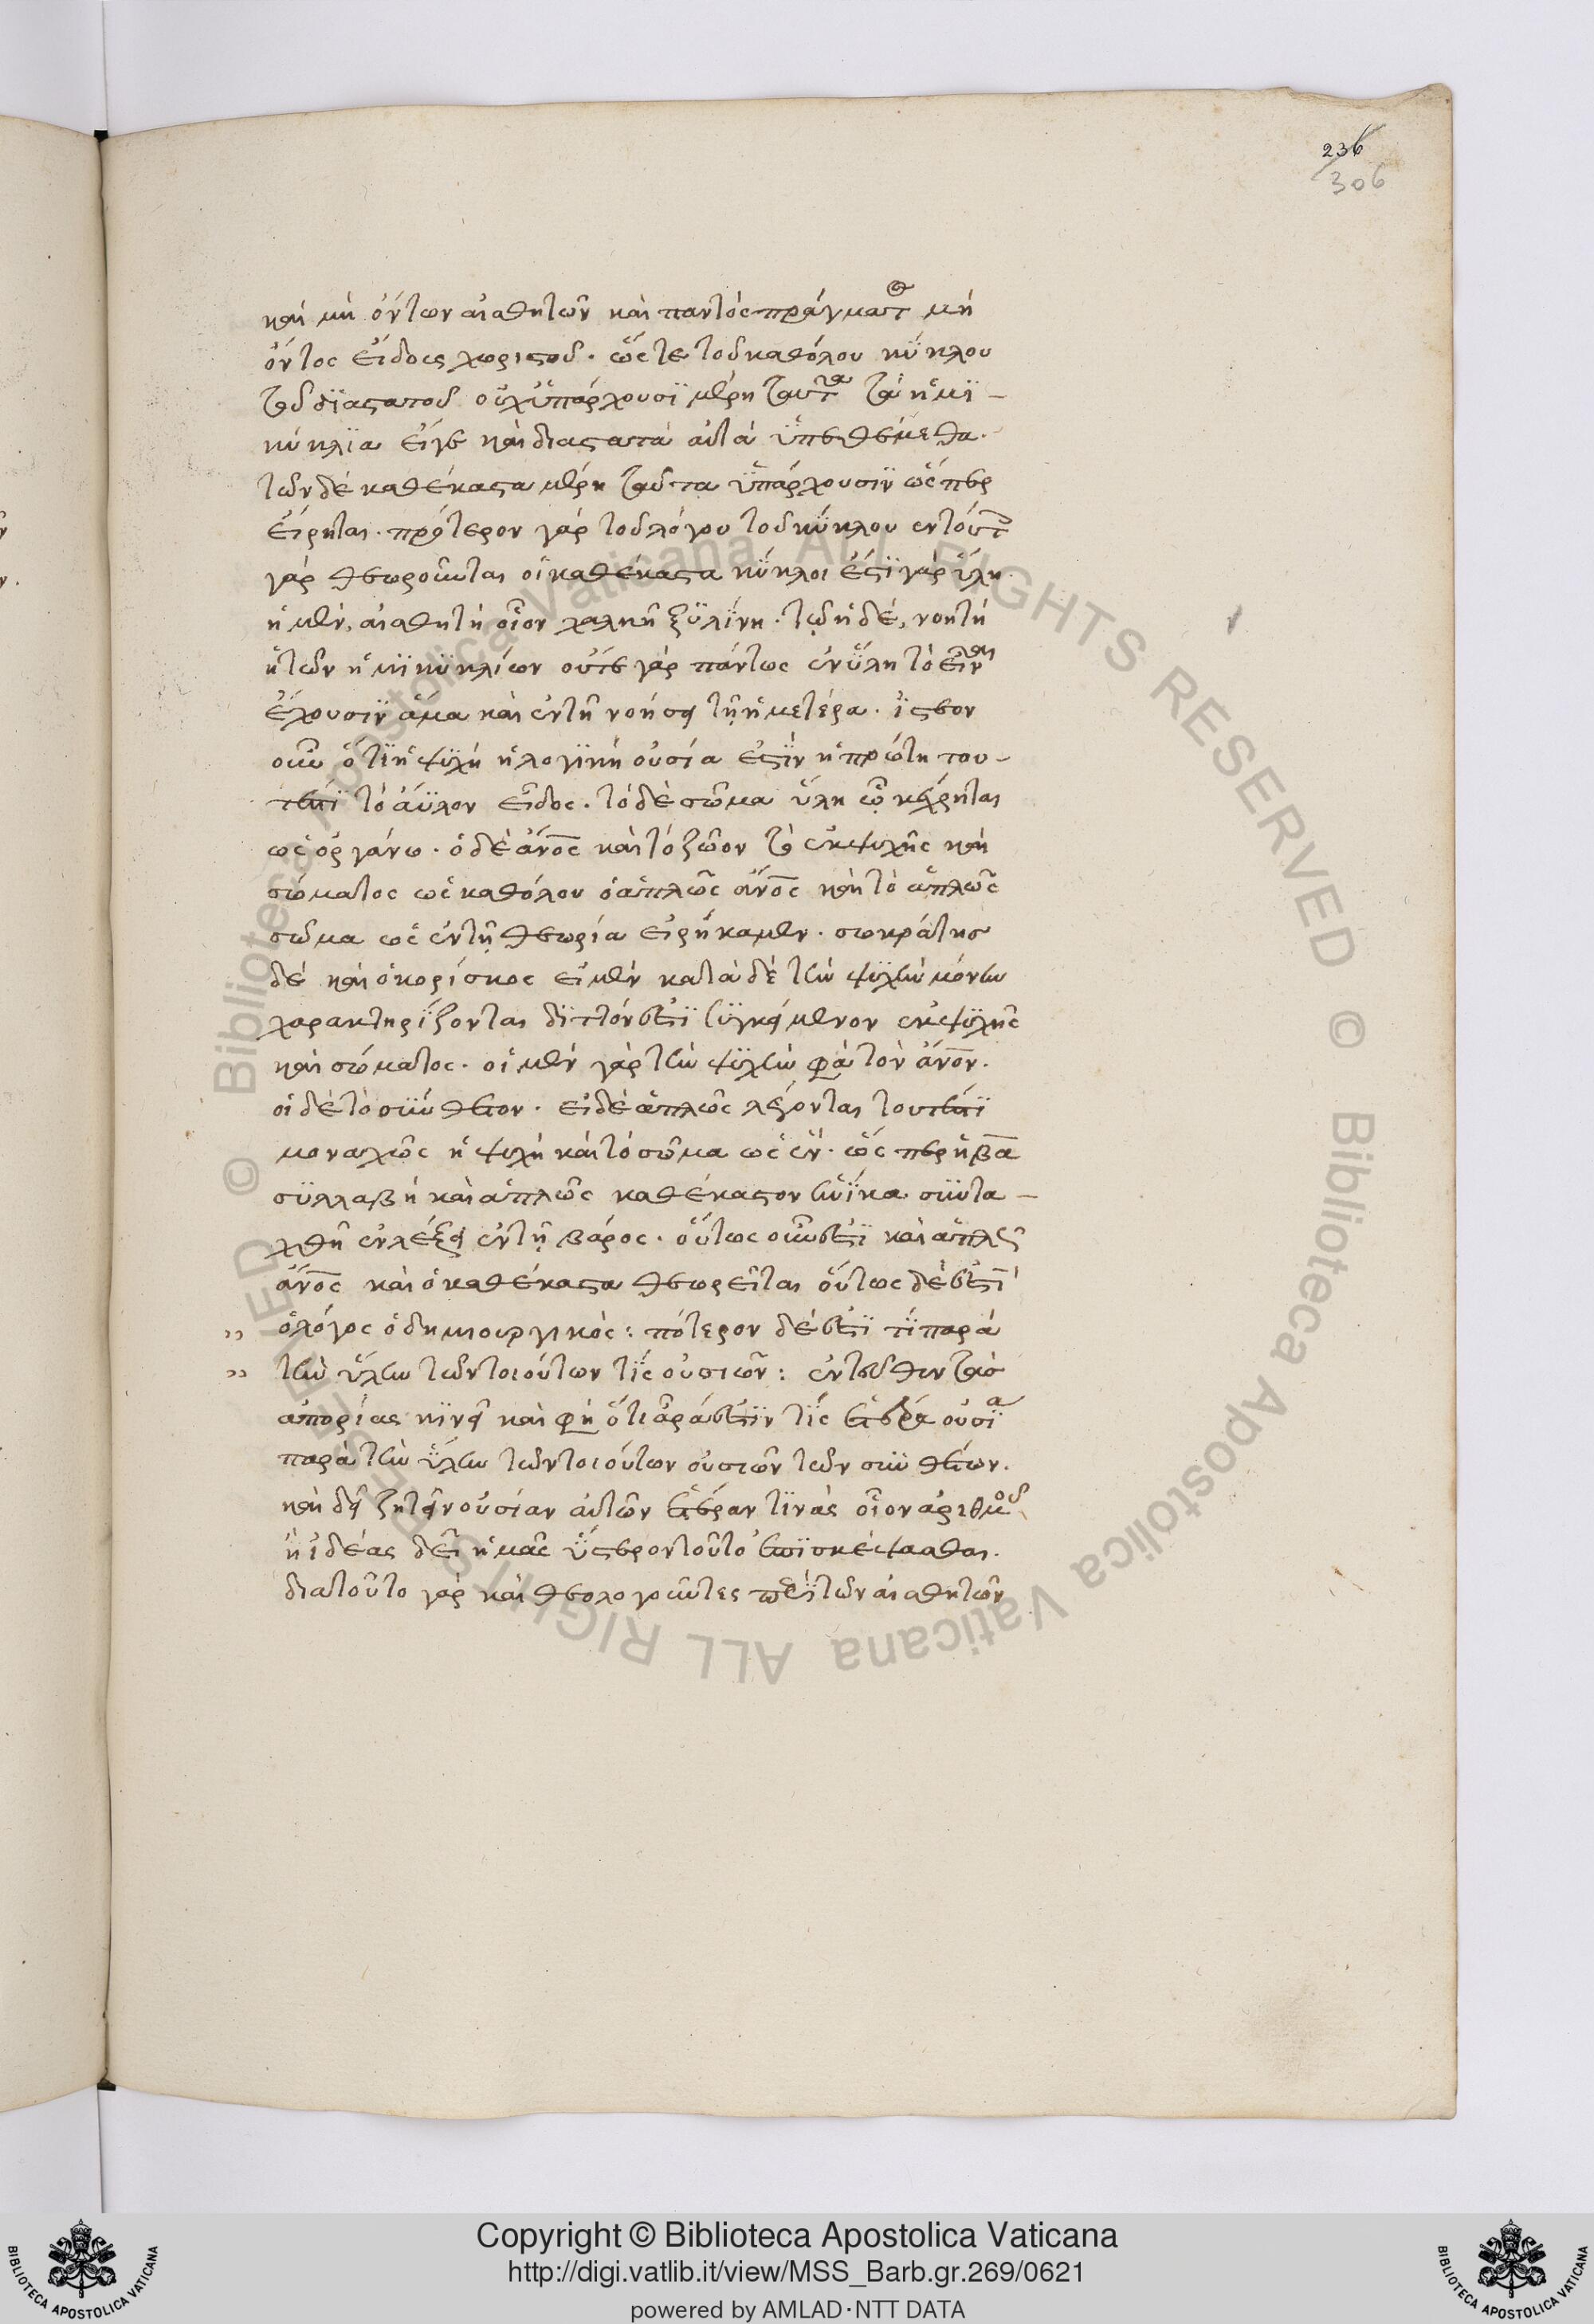 236
306
καὶ μὴ ὄντων αἰσθητῶν καὶ παντὸς πράγματος μὴ
ὄντος εἴδους χωριστοῦ. ὥστε τοῦ καθόλου κύκλου
τοῦ διαστατοῦ οὐχ ὑπάρχουσι μέρη ταῦτα τὰ ἡμι-
κύκλια εἴγε καὶ διαστατὰ αὐτὰ ὑπεθέμεθα.
τῶν δὲ καθέκαστα μέρη ταῦτα ὑπάρχουσιν ὥσπερ
εἴρηται. πρότερον γὰρ τοῦ λόγου τοῦ κύκλου ἐν τούτ
γὰρ θεωροῦνται οἱ καθέκαστα κύκλοι ἐστὶ γὰρ ὕλη
ἡ μὲν, αἰσθητὴ οἷον χαλκῆ ξυλίνη. τῶ ἡ δέ, νοητὴ
ἡ τῶν ἡμικυκλίων οὔτε γὰρ πάντως ἐν ὕλη τὸ εἶναι
ἔχουσιν ἅμα καὶ ἐν τῆ νοήσει τῆ ἡμετέρα. ἰστέον
οὖν ὅτι ἡ ψυχὴ ἡ λογικὴ οὐσία ἐστὶν ἡ πρώτη του-
τέστι τὸ ἄϋλον εἶδος. τὸ δὲ σῶμα ὕλη ᾧ κέχρηται
ὡς ὀργάνω. ὁ δὲ ἄνος καὶ τὸ ζῶον τὸ ἐκ ψυχῆς καὶ
σώματος ὡς καθόλου ὁ ἁπλῶς ἄνος καὶ τὸ ἁπλῶς
σῶμα ὡς ἐν τῆ θεωρία εἰρήκαμεν. σωκράτης
δὲ καὶ ὁ κορίσκος εἰ μὲν κατὰ δὲ τὴν ψυχὴν μόνην
χαρακτηρίζονται διττόν ἐστι συγκείμενον ἐκ ψυχῆς
καὶ σώματος. οἱ μὲν γὰρ τὴν ψυχὴν φα τὸν ἄνον.
οἱ δὲ τὸ σύνθετον. εἰ δὲ ἁπλῶς λέγονται τουτέστι
μοναχῶς ἡ ψυχὴ καὶ τὸ σῶμα ὡς ἕν. ὥσπερ ἡ βα
συλλαβὴ καὶ ἁπλῶς καθέκαστον ἡνίκα συντα-
χθῆ ἐν λέξει ἐν τῆ βάρος. οὕτως οὖν ἐστι καὶ ἁπλῶς
ἄνος καὶ ὁ καθέκαστα θεωρεῖται οὕτως δέ ἐστι
ὁ λόγος ὁ δημιουργικός: πότερον δέ ἐστι τὶ παρὰ
τὴν ὕλην τῶν τοιούτων τίς οὐσιῶν: ἐντεῦθεν τὰς
ἀπορίας κινεῖ καὶ φη ὅτι ἆρά ἐστιν τίς ἑτέρα οὐσία
παρὰ τὴν ὕλην τῶν τοιούτων οὐσιῶν τῶν συνθέτων.
καὶ δεῖ ζητεῖν οὐσίαν αὐτῶν ἑτέραν τινὰς οἷον ἀριθμοὺ
ἢ ἰδέας δεῖ ἡμᾶς ὕστερον τοῦτο ἐπισκέψασθαι.
διὰ τοῦτο γὰρ καὶ θεολογοῦντες περὶ τῶν αἰσθητῶν
© Biblioteca Apostolica Vaticana ALL RIGHTS RESERVED © Biblioteca Apostolica Vaticana ALL RIGHTS RESERVED
Copyright © Biblioteca Apostolica Vaticana
http://digi.vatlib.it/view/MSS_Barb.gr.269/0621
powered by AMLAD·NTT DATA
BIBLIOTECA APOSTOLICA VATICANA
BIBLIOTECA APOSTOLICA VATICANA